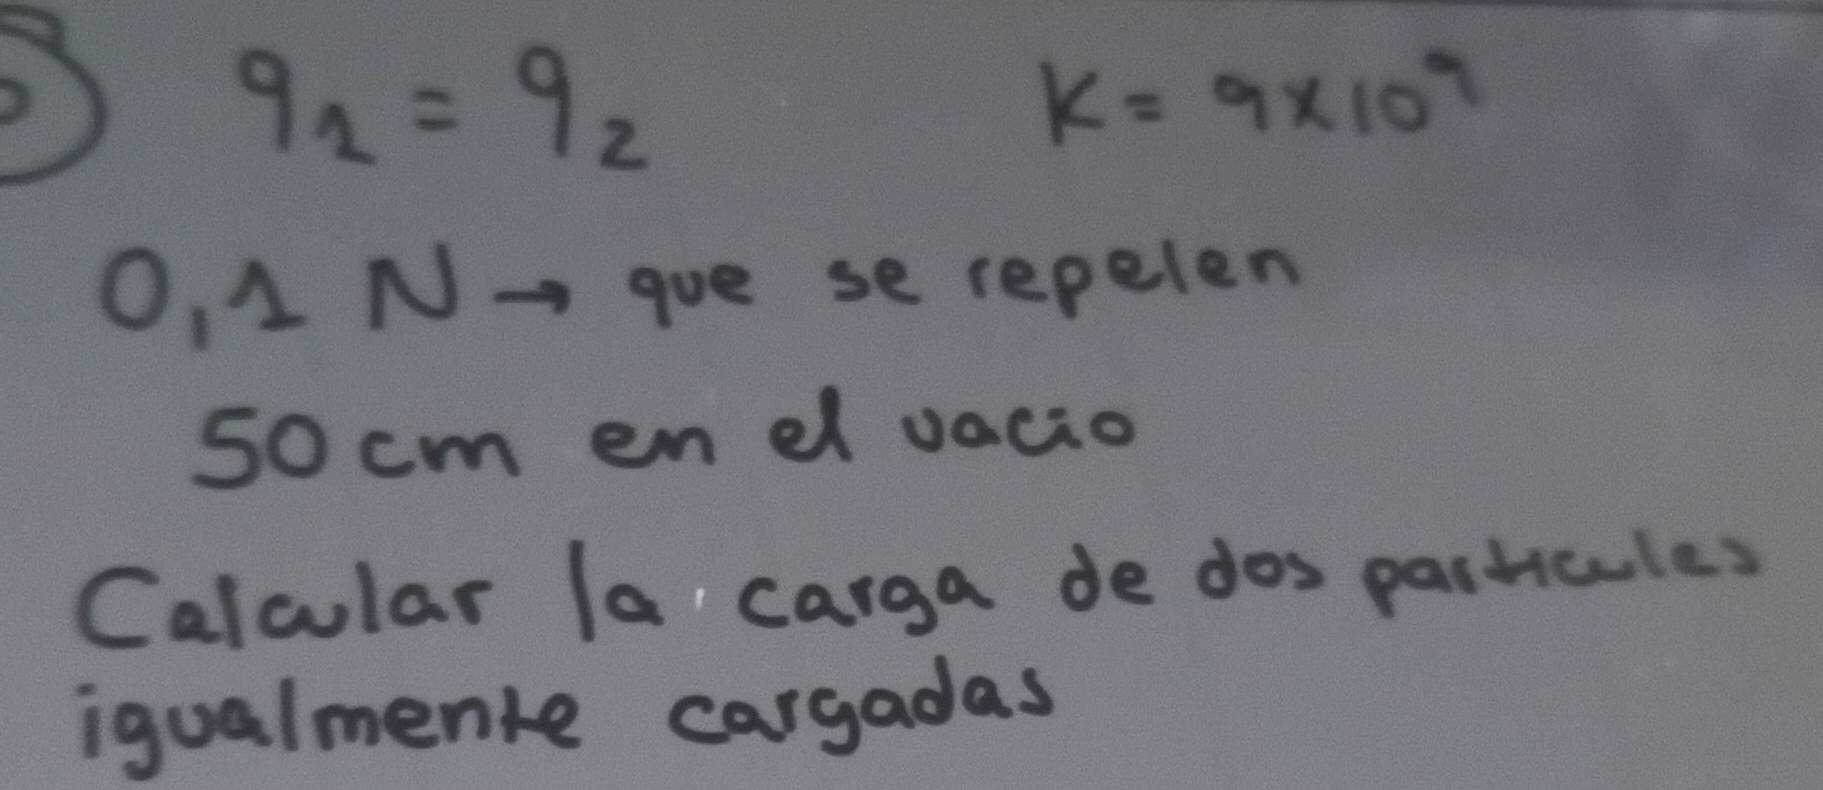 q1 = q2 K = 9x10⁹
0,1 N → que se repelen
50 cm en el vacio
Calcular la carga de dos particules
igualmente cargadas